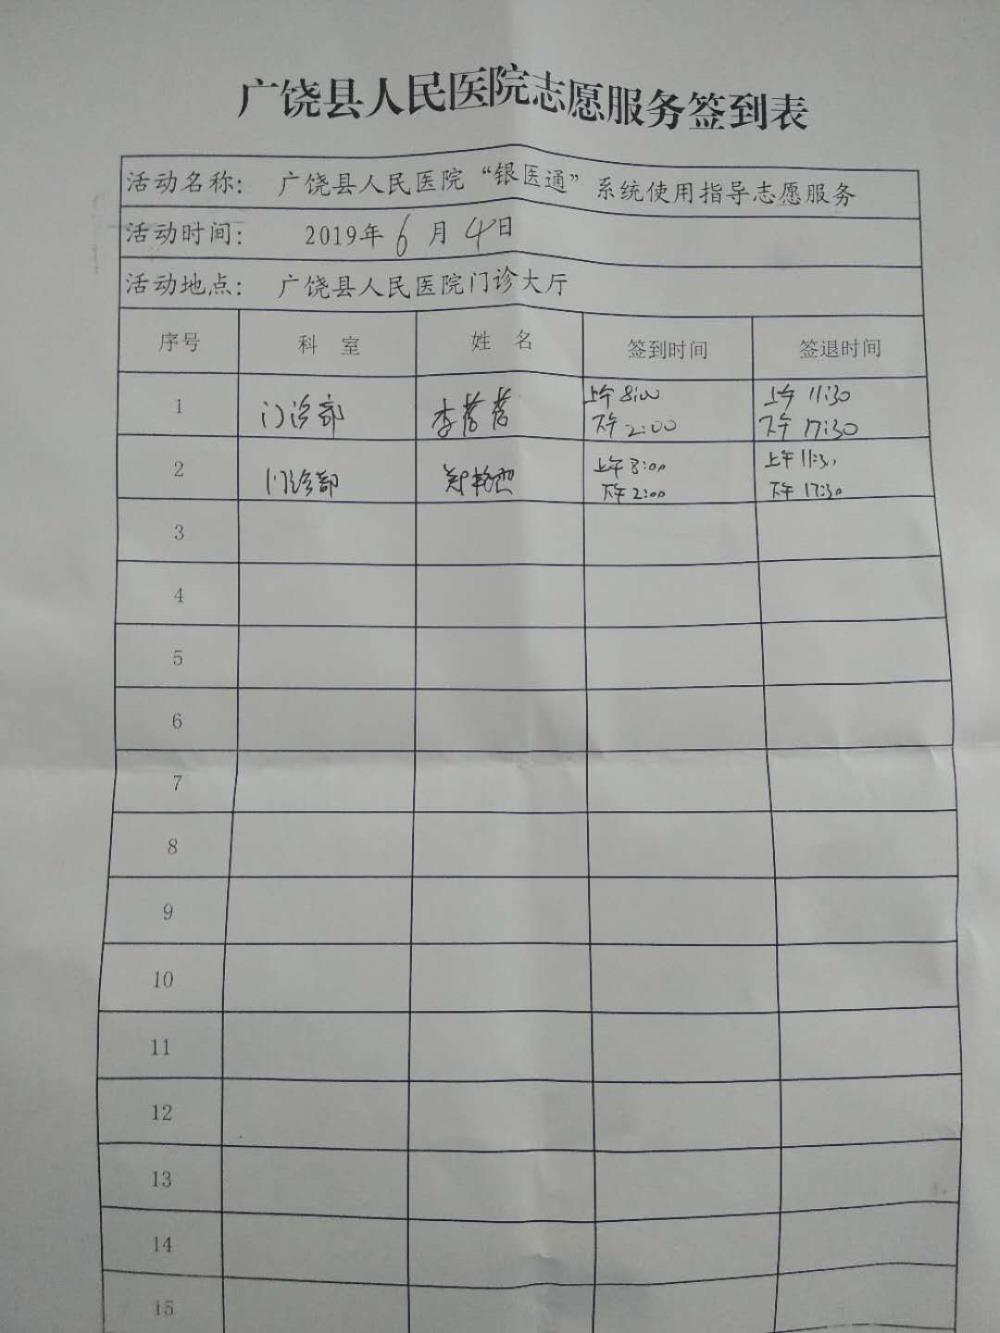 广饶县人民医院志愿服务签到表
活动名称： 广饶县人民医院“银医通”系统使用指导志愿服务
活动时间： 2019年 6 月 4日
活动地点： 广饶县人民医院门诊大厅
序号 科 室 姓 名 签到时间 签退时间
1 门诊部 李 上午 8:00 上午 11:30
下午 2:00 下午 17:30
2 门诊部 郑艳 上午 8:00 上午 11:30
下午 2:00 下午 17:30
3
4
5
6
7
8
9
10
11
12
13
14
15